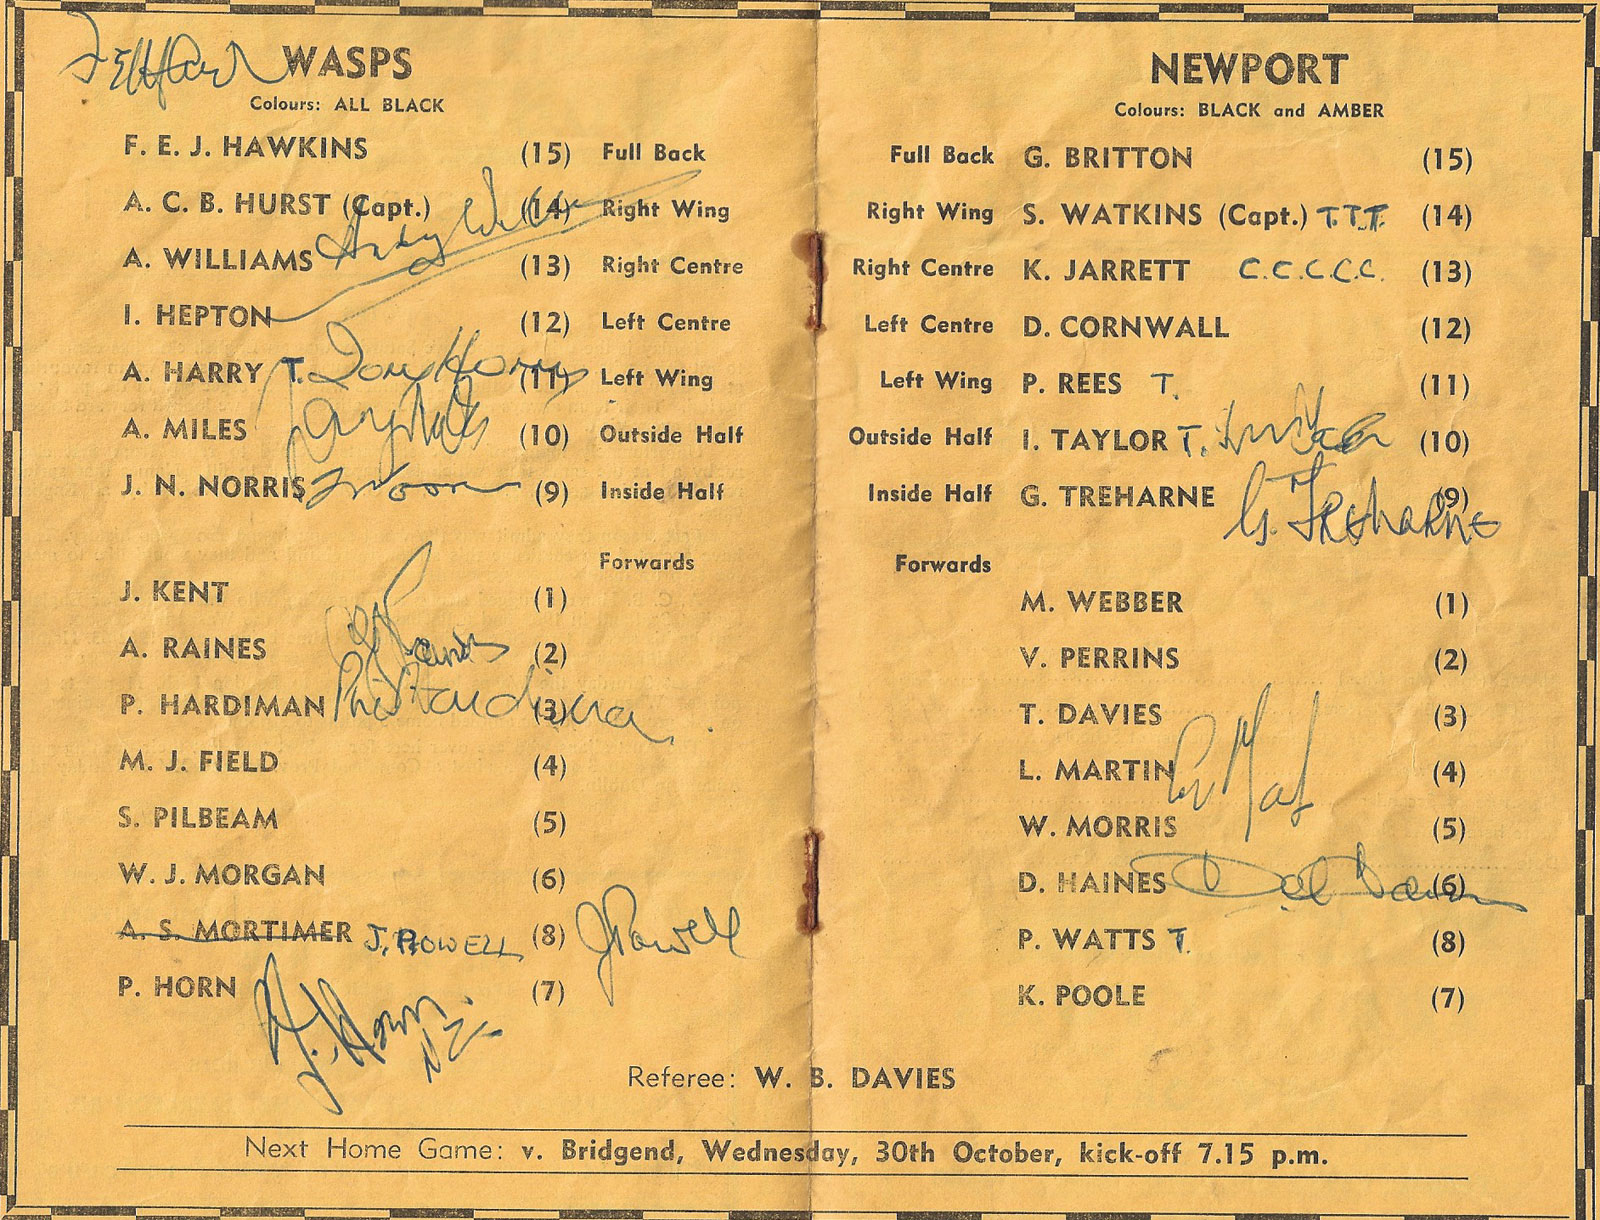 WASPS
Colours: ALL BLACK
F. E. J. HAWKINS (15) Full Back
A. C. B. HURST (Capt.) (14) Right Wing
A. WILLIAMS (13) Right Centre
I. HEPTON (12) Left Centre
A. HARRY T. (11) Left Wing
A. MILES (10) Outside Half
J. N. NORRIS (9) Inside Half
Forwards
J. KENT (1)
A. RAINES (2)
P. HARDIMAN (3)
M. J. FIELD (4)
S. PILBEAM (5)
W. J. MORGAN (6)
A. S. MORTIMER J. POWELL (8) J Powell
P. HORN (7)
NEWPORT
Colours: BLACK and AMBER
Full Back G. BRITTON (15)
Right Wing S. WATKINS (Capt.) T.T.T. (14)
Right Centre K. JARRETT C.C.C.C.C. (13)
Left Centre D. CORNWALL (12)
Left Wing P. REES T. (11)
Outside Half I. TAYLOR T. (10)
Inside Half G. TREHARNE (9)
G. Treharne
Forwards
M. WEBBER (1)
V. PERRINS (2)
T. DAVIES (3)
L. MARTIN (4)
W. MORRIS (5)
D. HAINES (6)
P. WATTS T. (8)
K. POOLE (7)
Referee: W. B. DAVIES
Next Home Game: v. Bridgend, Wednesday, 30th October, kick-off 7.15 p.m.